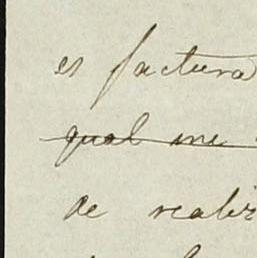 es factura
qual me
de realiz